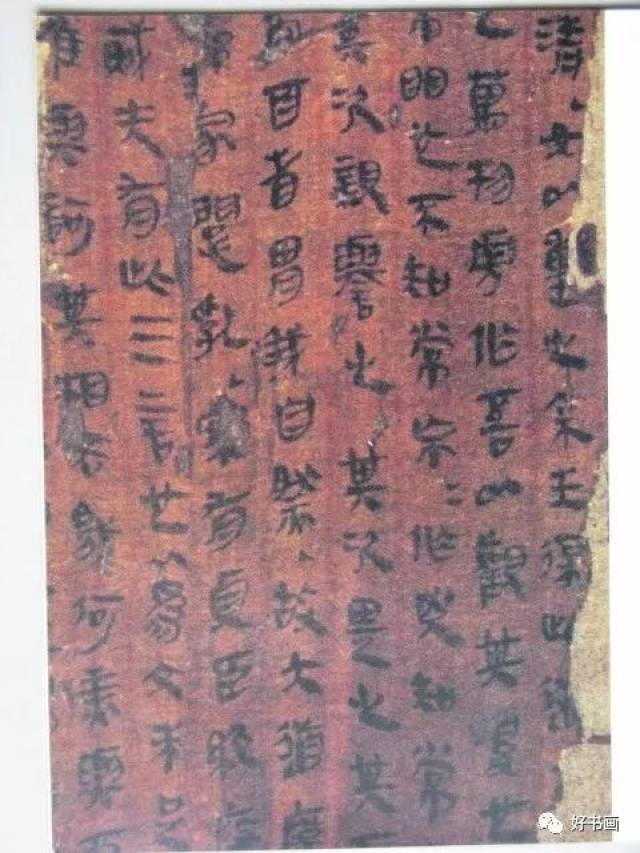 清女以重之余生葆此道
也萬物旁作吾以觀其復也
常明也不知常㠵=作兇知常
其次親譽之其次畏之其
而百省胃我自然故大道廢
家乳案有貞臣絕
賊无有此三言也以為文未足
唯與訶其相去幾何美與惡
好书画